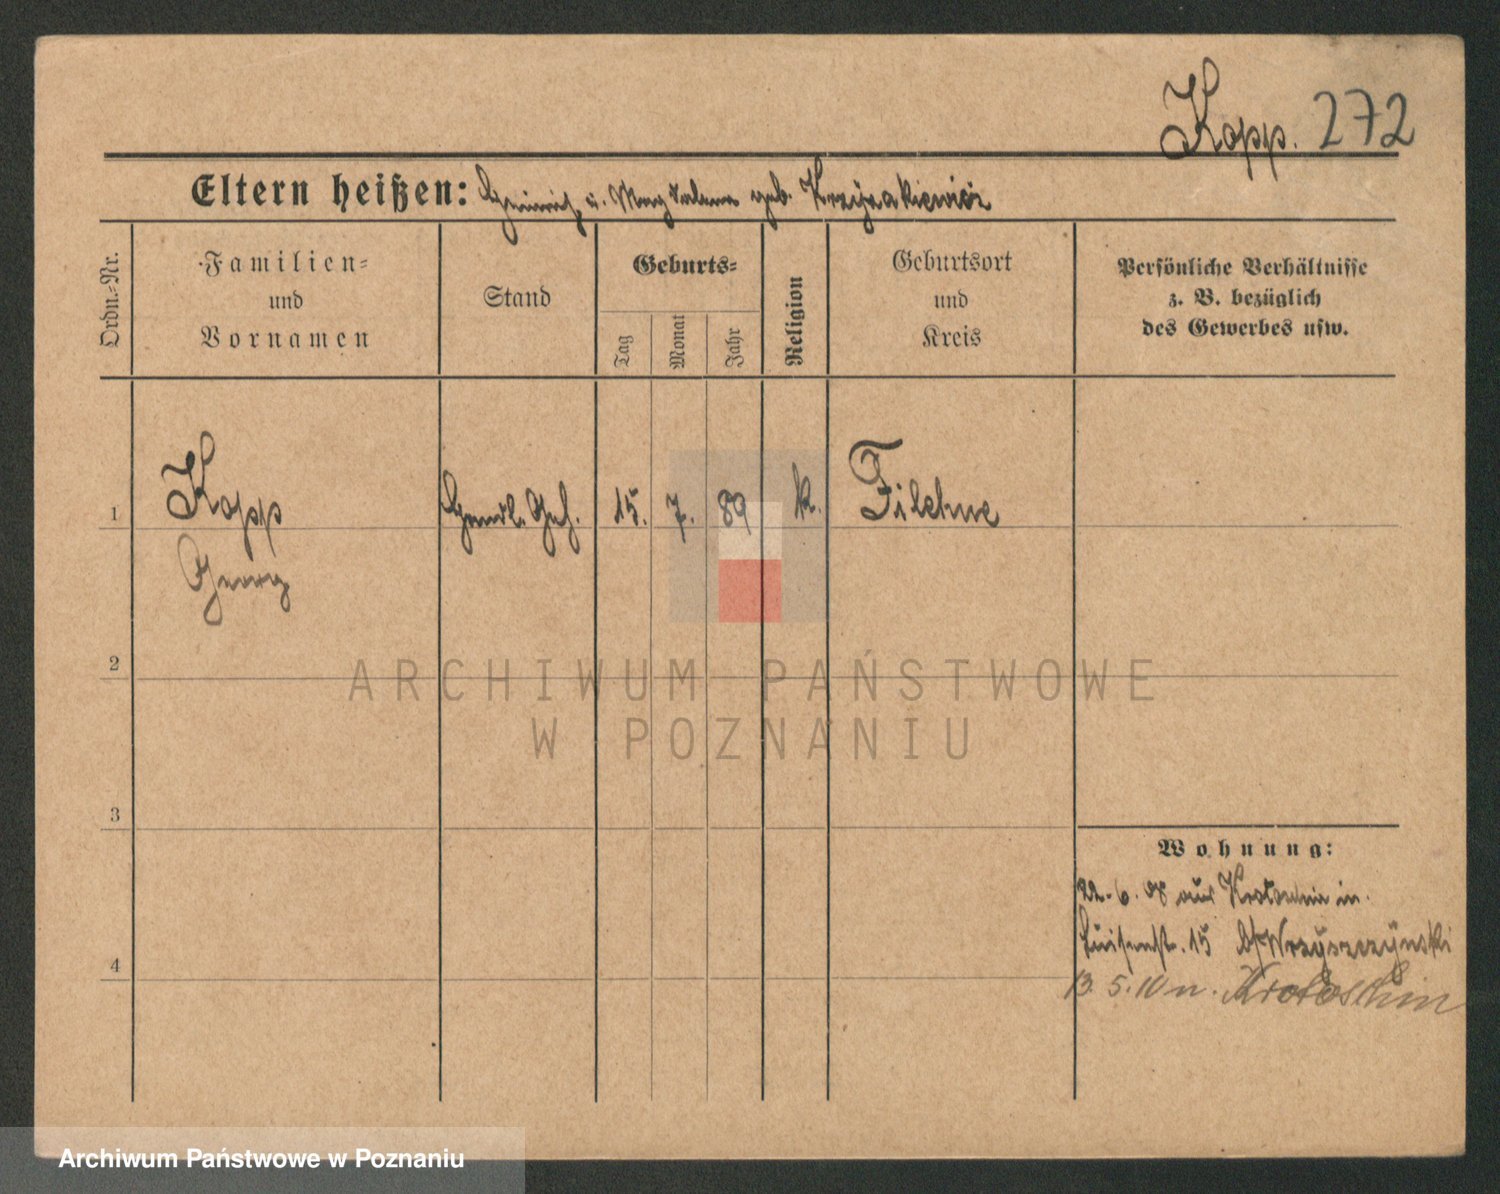 Kopp. 272
Eltern heißen: Heinrich u. Magdalena geb. Krzyzakiewicz
Ordn.-Nr.
Familien-
und
Vornamen
Stand
Geburts-
Tag
Monat
Jahr
Religion
Geburtsort
und
Kreis
Persönliche Verhältnisse
z. B. bezüglich
des Gewerbes usw.
1
Kopp
Georg
Handl. Geh.
15.
7.
89
k.
Filehne
2
ARCHIWUM PAŃSTWOWE
W POZNANIU
3
4
Wohnung:
22.6.08 aus Krotoschin in
Luisenstr. 15 Wrzyszczynski
13.5.10 n. Krotoschin
Archiwum Państwowe w Poznaniu